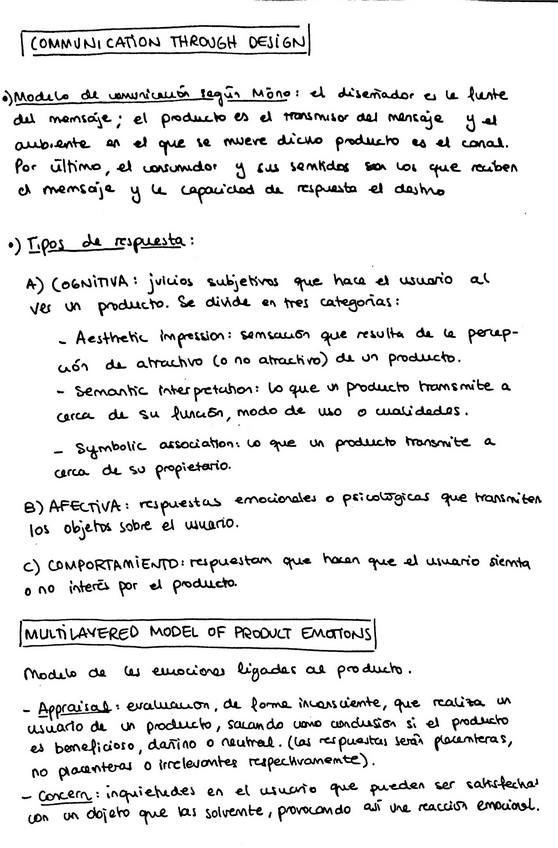 COMMUNICATION THROUGH DESIGN
•) Modelo de comunicación según Mono: el diseñador es la fuente
del mensaje; el producto es el transmisor del mensaje y el
ambiente en el que se mueve dicho producto es el canal.
Por último, el consumidor y sus sentidos son los que reciben
el mensaje y la capacidad de respuesta el destino
•) Tipos de respuesta:
A) COGNITIVA: juicios subjetivos que hace el usuario al
ver un producto. Se divide en tres categorías:
- Aesthetic impression: sensación que resulta de la percep-
ción de atractivo (o no atractivo) de un producto.
- Semantic interpretation: lo que un producto transmite a
cerca de su función, modo de uso o cualidades.
- Symbolic association: lo que un producto transmite a
cerca de su propietario.
B) AFECTIVA: respuestas emocionales o psicológicas que transmiten
los objetos sobre el usuario.
C) COMPORTAMIENTO: respuestam que hacen que el usuario sienta
o no interés por el producto.
MULTILAYERED MODEL OF PRODUCT EMOTIONS
Modelo de las emociones ligadas al producto.
- Appraisal: evaluacion, de forma inconsciente, que realiza un
usuario de un producto, sacando como conclusion si el producto
es beneficioso, dañino o neutral. (las respuestas serán placenteras,
no placenteras o irrelevantes respectivamente).
- Concern: inquietudes en el usuario que pueden ser satisfechas
con un objeto que las solvente, provocando así una reacción emocional.